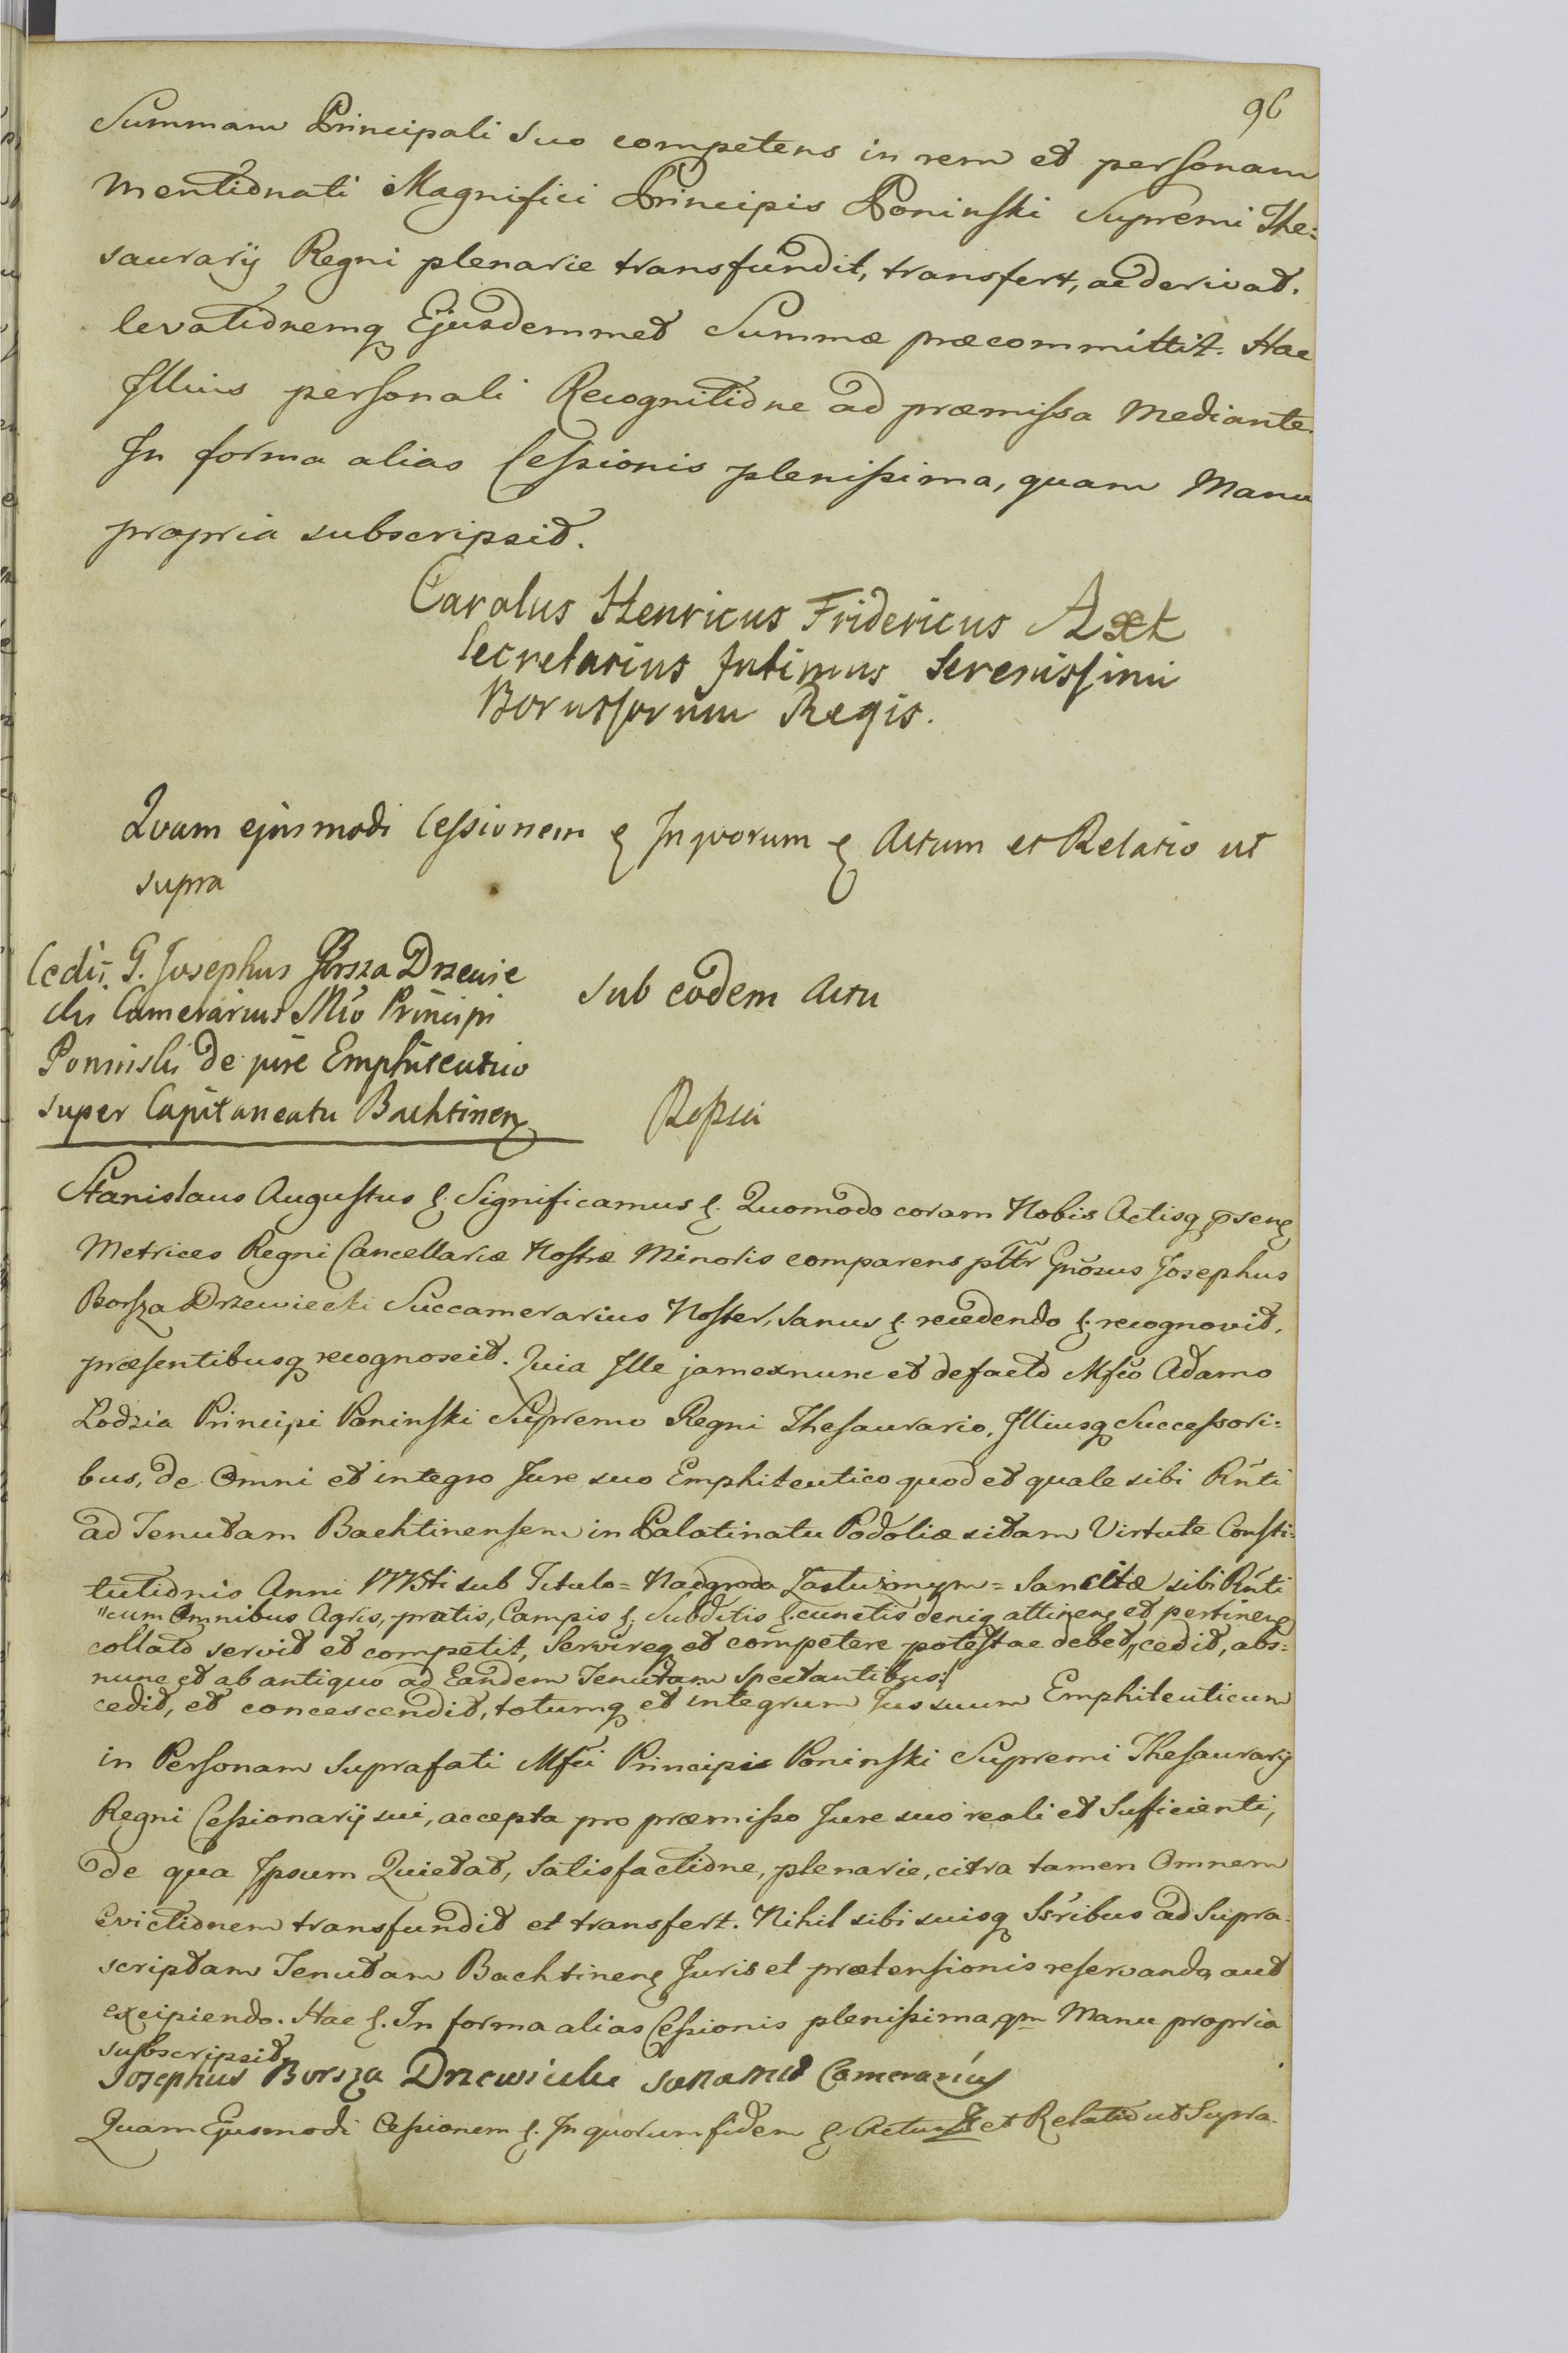 96
Summam Principali suo competens in rem et personam
mentionati Magnifici Principis Poninski Supremi The=
saurarij Regni plenarie transfundit, transfert, ac derivat.
levationemq Ejusdemmet Summæ præcommittit. Hac
Illius personali Recognitione ad præmissa mediante.
In forma alias Cessionis plenissima, quam Manu
propria subscripsit.
Carolus Henricus Fridericus Axt
Secretarius Intimus Serenissimi
Borussorum Regis.
Quam ejusmodi Cessionem & In quorum & Actum et Relatio ut
supra
Cedit G. Josephus Borsza Drzewie
cki Camerarius Mfco Principi
Poninski de jure Emphiteutico
super Capitaneatu Bachtinen
sub eodem Actu
Stanislaus Augustus & Significamus &. Quomodo coram Nobis Actisq pñsen
Metrices Regni Cancellariæ Nostræ Minoris comparens plttr Gñosus Josephus
Borsza Drzewiecki Succamerarius Noster, sanus & recedendo & recognovit,
præsentibusq recognoscit. Quia Ille jam exnunc et defacto Mfco Adamo
Lodzia Principi Poninski Supremo Regni Thesaurario, Illiusq Successori=
bus, de Omni et integro Jure suo Emphiteutico quod et quale sibi Rñti
ad Tenutam Bachtinensem in Palatinatu Podoliæ sitam Virtute Consti=
tutionis Anni 1775ti sub Titulo = Nadgroda Zasłużonym = Sancitæ sibi Rñti
"cum Omnibus Agris, pratis, Campis &. Subditis & cunctis deniq attinen et pertinen
collato servit et competit, Servireq et competere potest ac debet, "cedit, abs=
nunc et ab antiquo ad Eandem Tenutam Spectantibus:"
cedit, et concescendit, totumq et integrum Jus suum Emphiteuticum
in Personam suprafati Mfci Principis Poninski Supremi Thesaurarij
Regni Cessionarij sui, accepta pro præmisso Jure suo reali et Sufficienti,
de qua Ipsum Quietat, Satisfactione, plenarie, citra tamen Omnem
Evictionem transfundit et transfert. Nihil sibi suisq Ssribus ad Supra=
scriptam Tenutam Bachtinen Juris et prætensionis reservando, aut
excipiendo. Hac &. In forma alias Cessionis plenissima, qm Manu propria
subscripsit.
Josephus Borsza Drzewiecki Camerarius
Quam Ejusmodi Cessionem &. In quorum fidem & Actum et Relatio ut Supra.